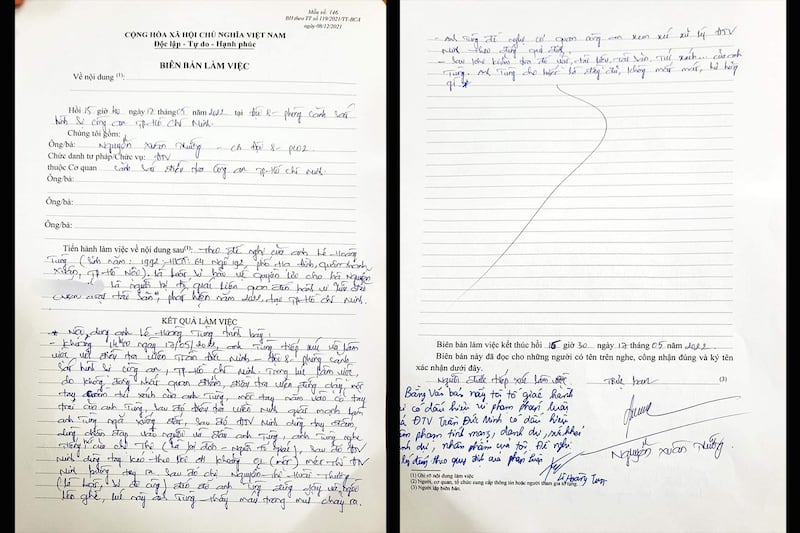 Mẫu số: 146
BH theo TT số 119/2021/TT-BCA
ngày 08/12/2021
CỘNG HÒA XÃ HỘI CHỦ NGHĨA VIỆT NAM
Độc lập - Tự do - Hạnh phúc
BIÊN BẢN LÀM VIỆC
Về nội dung (1):
Hồi 15 giờ 00 ngày 17 tháng 05 năm 2022 tại Đội 8 - phòng cảnh sát
hình sự công an TP. Hồ Chí Minh.
Chúng tôi gồm:
Ông/bà: Nguyễn Xuân Trường - cb Đội 8 - PC02
Chức danh tư pháp/Chức vụ: ĐTV
thuộc Cơ quan cảnh sát điều tra công an TP. Hồ Chí Minh.
Ông/bà:
Ông/bà:
Ông/bà:
Tiến hành làm việc về nội dung sau(1): Theo đề nghị của anh Lê Hoàng
Tùng (sinh năm: 1992; HKTT: 64 Ngõ 192, phố Hạ Đình, quận Thanh
Xuân, TP. Hà Nội). là luật sư bảo vệ quyền lợi cho bà Nguyễn
là người bị tố giác liên quan đến hành vi "lừa đảo
chiếm đoạt tài sản", năm 2022, tại TP. Hồ Chí Minh.
KẾT QUẢ LÀM VIỆC
* Nội dung anh Lê Hoàng Tùng trình bày:
- Khoảng 14h00 ngày 17/05/2022, anh Tùng tiếp xúc và làm
việc với điều tra viên Trần Đức Minh - Đội 8 - phòng cảnh
sát hình sự công an TP. Hồ Chí Minh. Trong lúc làm việc,
do không thống nhất quan điểm, điều tra viên đứng dậy, một
tay túi xách của anh Tùng, một tay nắm vào cổ tay
trái của anh Tùng, sau đó điều tra viên Minh quật mạnh làm
anh Tùng ngã xuống đất, sau đó ĐTV Minh dùng tay
dùng chân vào người và đầu anh Tùng, anh Tùng nghe
tiếng của chị Thể (là bị đơn - người tố giác), sau đó ĐTV
Minh dùng tay kéo theo tôi đi khoảng 01 (một) mét thì ĐTV
Minh buông tay ra. Sau đó chị Nguyễn Thị Hoài Thương
(là luật sư đi cùng) đến đỡ anh Tùng đứng dậy và ngồi
lên ghế, lúc này anh Tùng thấy máu trong mũi chảy ra.
- Anh Tùng đề nghị cơ quan công an xem xét xử lý ĐTV
Minh theo đúng quy định.
- Sau khi kiểm tra đồ vật, tài liệu, tài sản, túi xách... của anh
Tùng. Anh Tùng cho biết là đầy đủ, không mất mát, hư hỏng
gì. *
Biên bản làm việc kết thúc hồi 15 giờ 30 ngày 17 tháng 05 năm 2022.
Biên bản này đã đọc cho những người có tên trên nghe, công nhận đúng và ký tên
xác nhận dưới đây.
Người được tiếp xúc làm việc
Trực ban
(3)
Bằng văn bản này tôi tố giác hành
vi có dấu hiệu vi phạm pháp luật
ĐTV Trần Đức Minh có dấu hiệu
xâm phạm tính mạng, danh dự, sức khỏe
, nhân phẩm của tôi. Đề nghị
xử lý đúng theo quy định của pháp luật
Lê Hoàng Tùng
Nguyễn Xuân Trường.
(1) Ghi rõ nội dung làm việc
(2) Người, cơ quan, tổ chức cung cấp thông tin hoặc người tham gia tố tụng.
(3) Người lập biên bản.